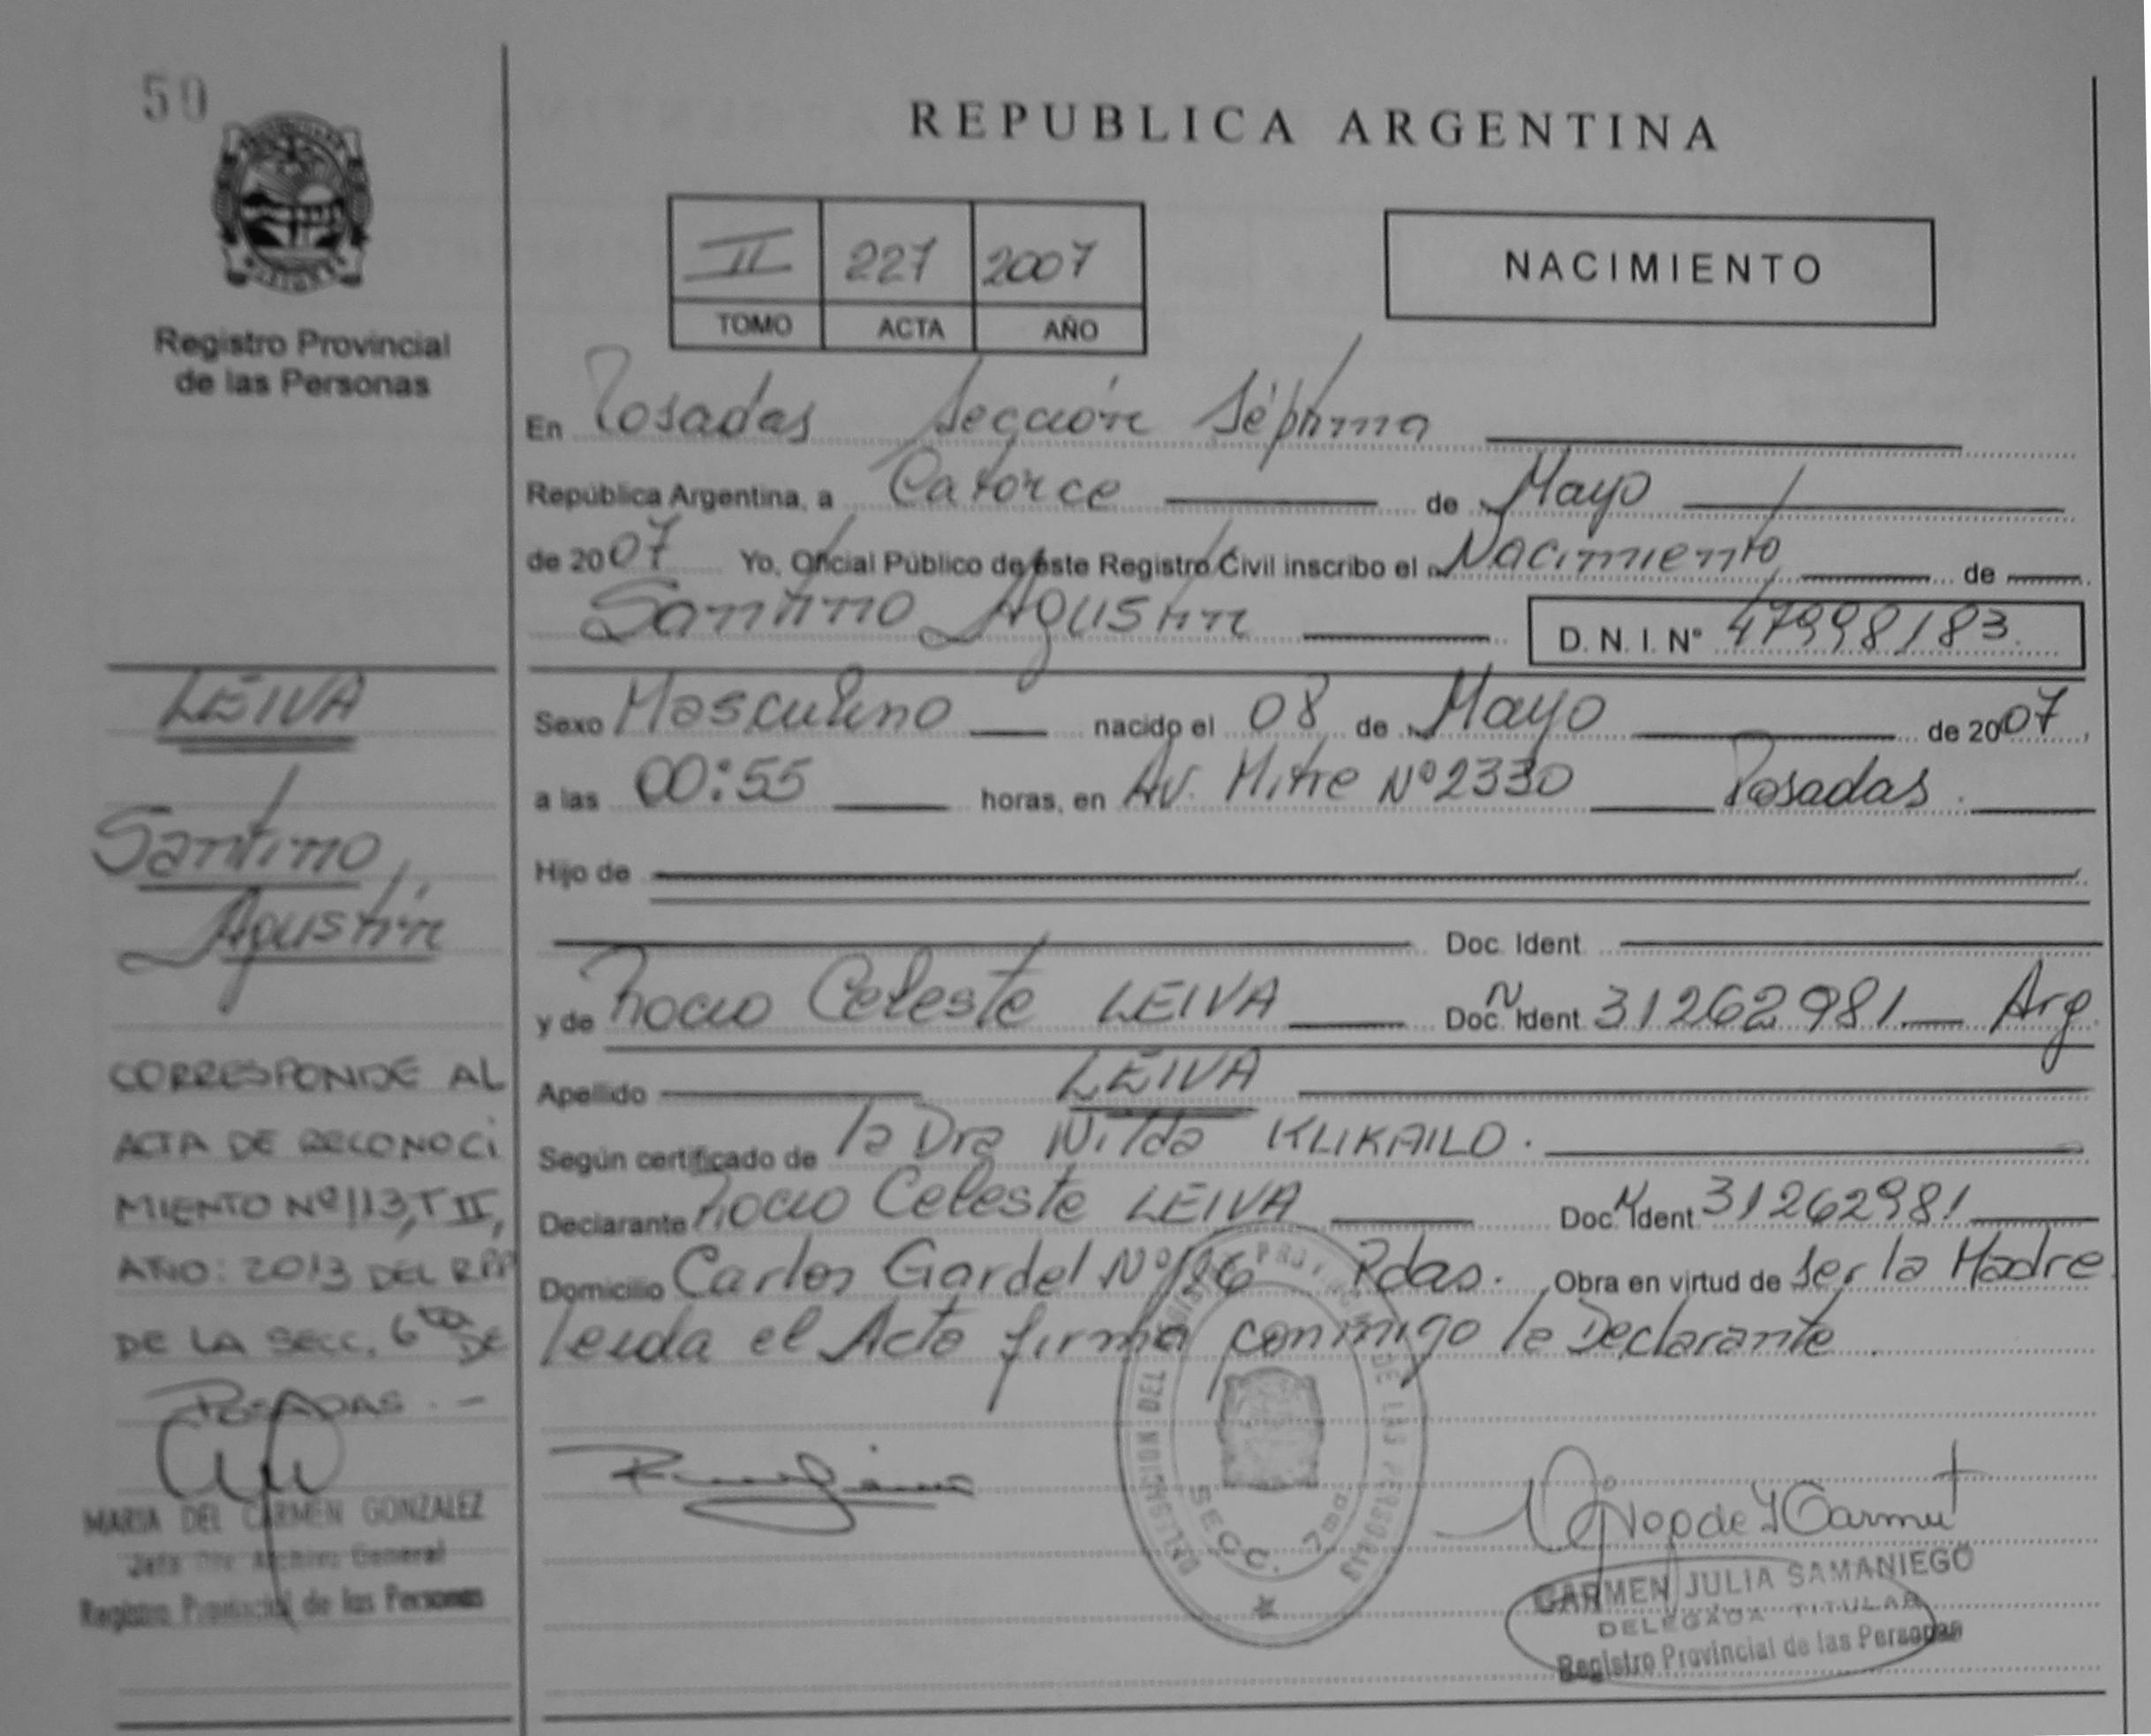 50
REPUBLICA ARGENTINA
II 227 2007
TOMO ACTA AÑO
NACIMIENTO
Registro Provincial
de las Personas
En Posadas Sección Séptima
República Argentina, a Catorce de Mayo
de 2007 Yo, Oficial Público de este Registro Civil inscribo el Nacimiento de
Santino Agustín D. N. I. N° 47998183
Sexo Masculino nacido el 08 de Mayo de 2007
a las 00:55 horas, en Av. Mitre Nº 2330 Posadas.
Hijo de
Doc. Ident.
y de Rocio Celeste LEIVA Doc. N Ident 31262981 Arg.
Apellido LEIVA
Según certificado de la Dra Nilda KLIKAILO.
Declarante Rocio Celeste LEIVA Doc. N Ident 31262981
Domicilio Carlos Gardel Nº 126 Pdas. Obra en virtud de ser la Madre
leida el Acta firma conmigo la Declarante.
LEIVA
Santino
Agustín
CORRESPONDE AL
ACTA DE RECONOCI
MIENTO Nº 113, T II,
AÑO: 2013 DEL RPP
DE LA SECC. 6ta DE
POSADAS.-
MARIA DEL CARMEN GONZALEZ
Jefa Div Archivo General
Registro Provincial de las Personas
DELEGACION DEL REGISTRO PROVINCIAL DE LAS PERSONAS
SECC. 7ma
CARMEN JULIA SAMANIEGO
DELEGADA TITULAR
Registro Provincial de las Personas